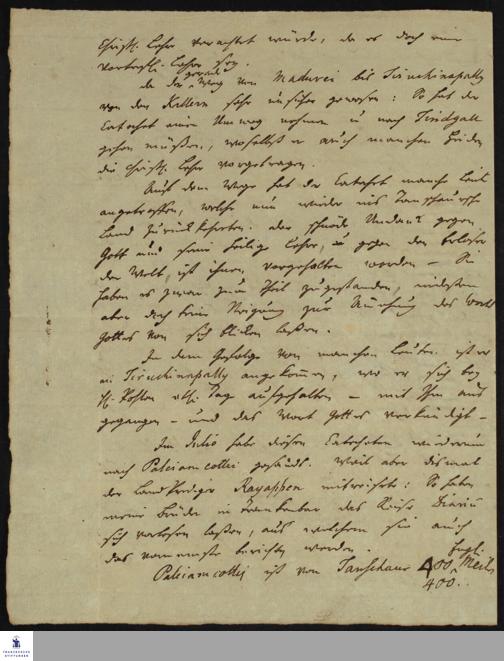 Christl. Lehre verachtet würde, da es doch eine
vortrefl. Lehre sey.
da der gerade Weg von Madurei bis Tiruchinapally
von den Kallern sehr unsicher gewesen: So hat der
Catechet einen Umweg nehmen u nach Tindigall
gehen müßen, woselbst er auch manchen Heiden
die christl. Lehre vorgetragen.
Auf dem Wege hat der Catechet manche Leute
angetroffen, welche nun wieder ins Tanschaursche
Land zurück kehrten. der schnöde Undank gegen
Gott und seine heilige Lehre, u gegen den Erlöser
der Welt, ist ihnen vorgehalten worden – Sie
haben es zwar zum Theil zugestanden, indessen
aber doch keine Neigung zur des Worts
Gottes von sich blicken laßen.
In dem Gefolge von manchen Leuten ist er
in Tiruchinapally angekommen, wo er sich bey
H. Pohlen etl. Tag aufgehalten – mit Ihm aus
gegangen – und das Wort Gottes verkündigt –
Im Julio habe diesen Catecheten wiederum
nach Paleiamcottei gesandt. Weil aber dismal
der Landprediger Rayappen mitreisete: So haben
meine Brüder in Trankenbar das Reise Diarium
sich vorlesen laßen, aus welchem sie auch
das vornemste berichten werden.
Engl.
Paleiamcottei ist von Tanschaur 400 Meilen
400.
FRANCKESCHE
STIFTUNGEN